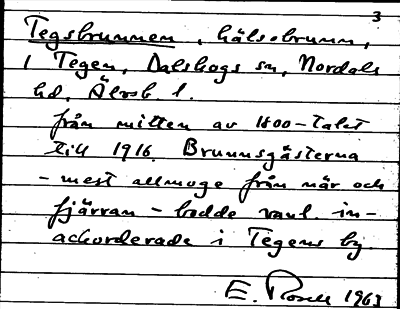 3
Tegsbrunnen, hälsobrunn,
i Tegen, Dalskogs sn, Nordals
hd, Älvsb. l.
från mitten av 1800-talet
till 1916. Brunnsgästerna
- mest allmoge från när och
fjärran - bodde vanl. in-
ackorderade i Tegens by.
E. 1963